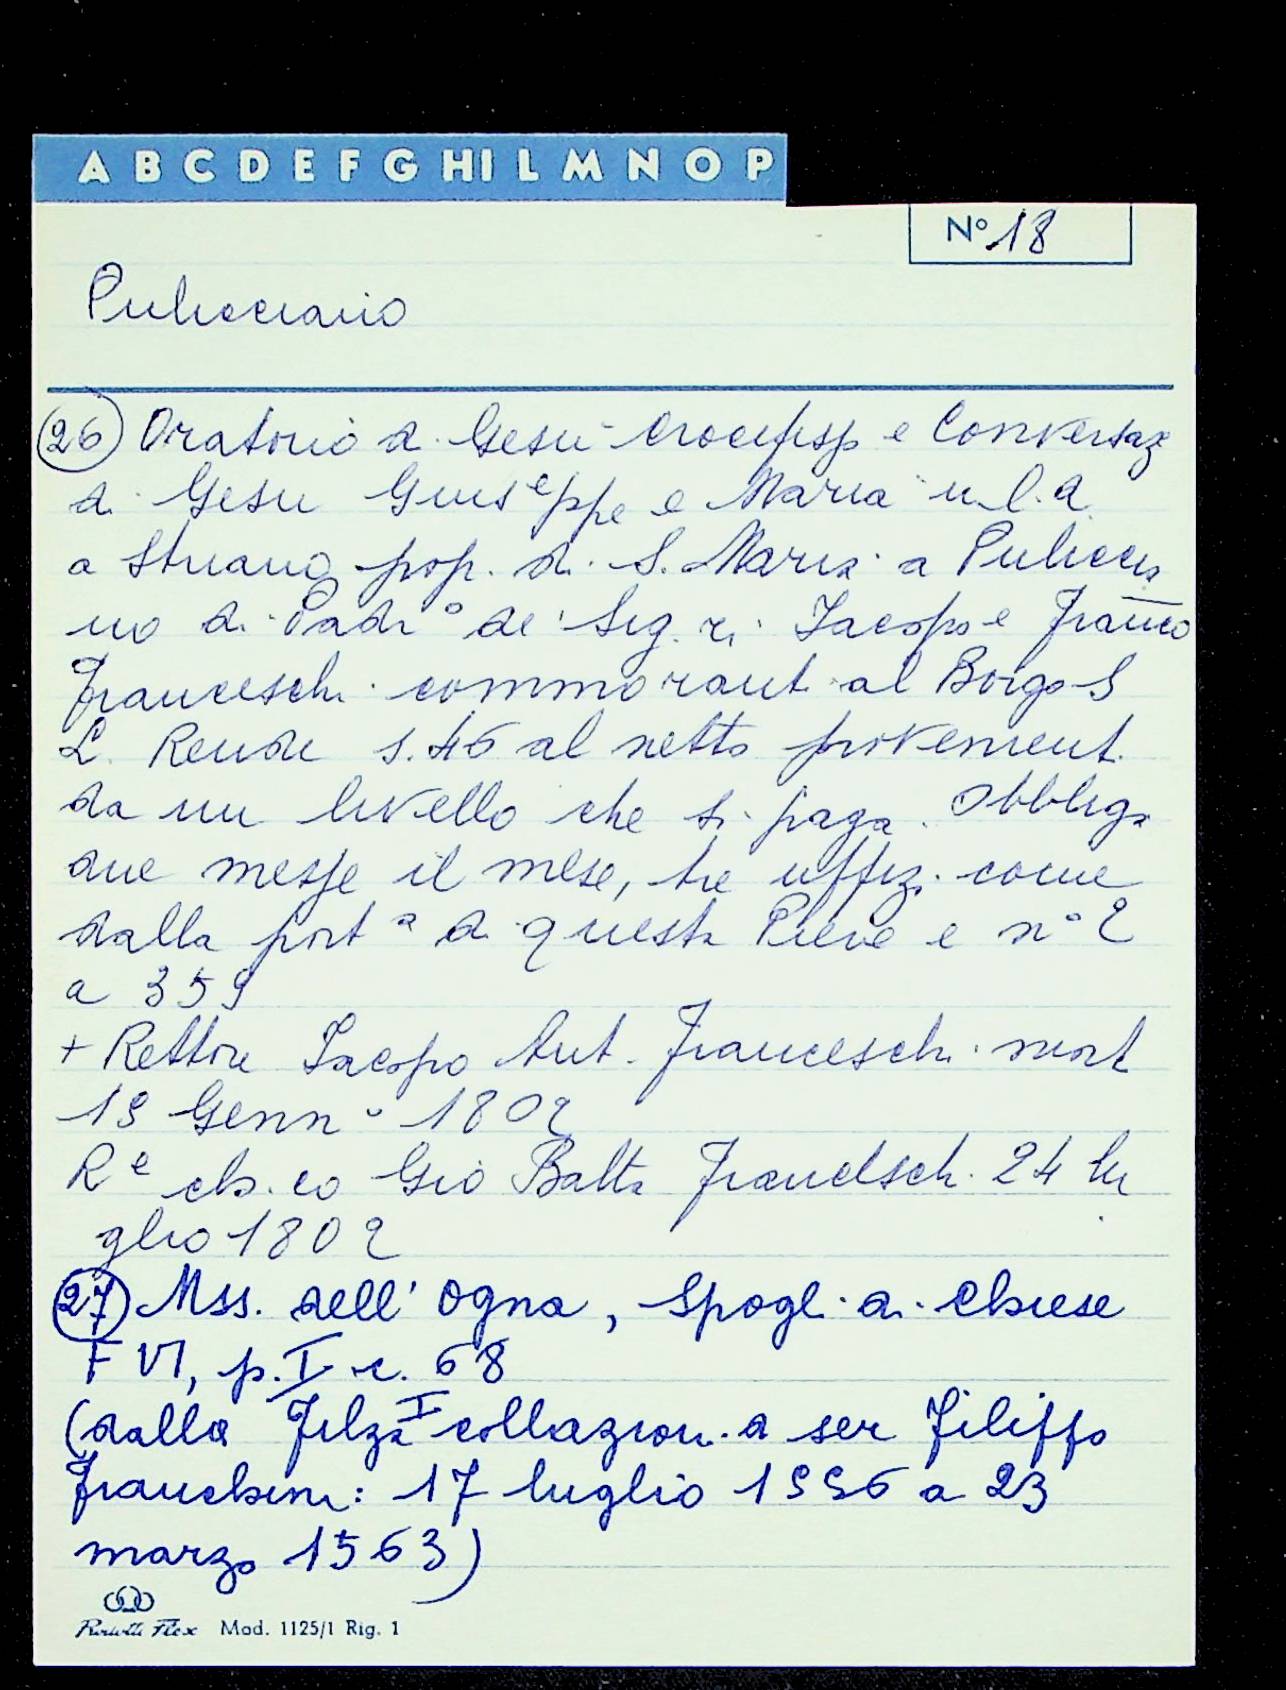 A B C D E F G HI L M N O P
N° 18
Pulicciano
26 Oratorio di Gesù Crocifisso e Conversaz
di Gesu Giuseppe e Maria u.l.d.
a Striano pop. di S. Maria a Puliccia
no di Padr° de' Sig.ri Iacopo e Franco
Franceschi commorant. al Borgo S
L. Rende s. 46 al netto provenient.
da un livello che si paga. Obbliga
due messe il mese, tre uffizi come
dalla port a di questa Pieve e n° 2
a 359
+ Rettore Iacopo Ant. Franceschi mort
19 Genn° 1802
R e ch.co Gio Batta Franceschi 24 lu
glio 1802
27 Mss. dell'Ogna, Spogli di Chiese
F VI, p. I c. 68
(dalla Filza I collazioni di ser Filippo
Franchini: 17 luglio 1556 a 23
marzo 1563)
Flex Mod. 1125/1 Rig. 1